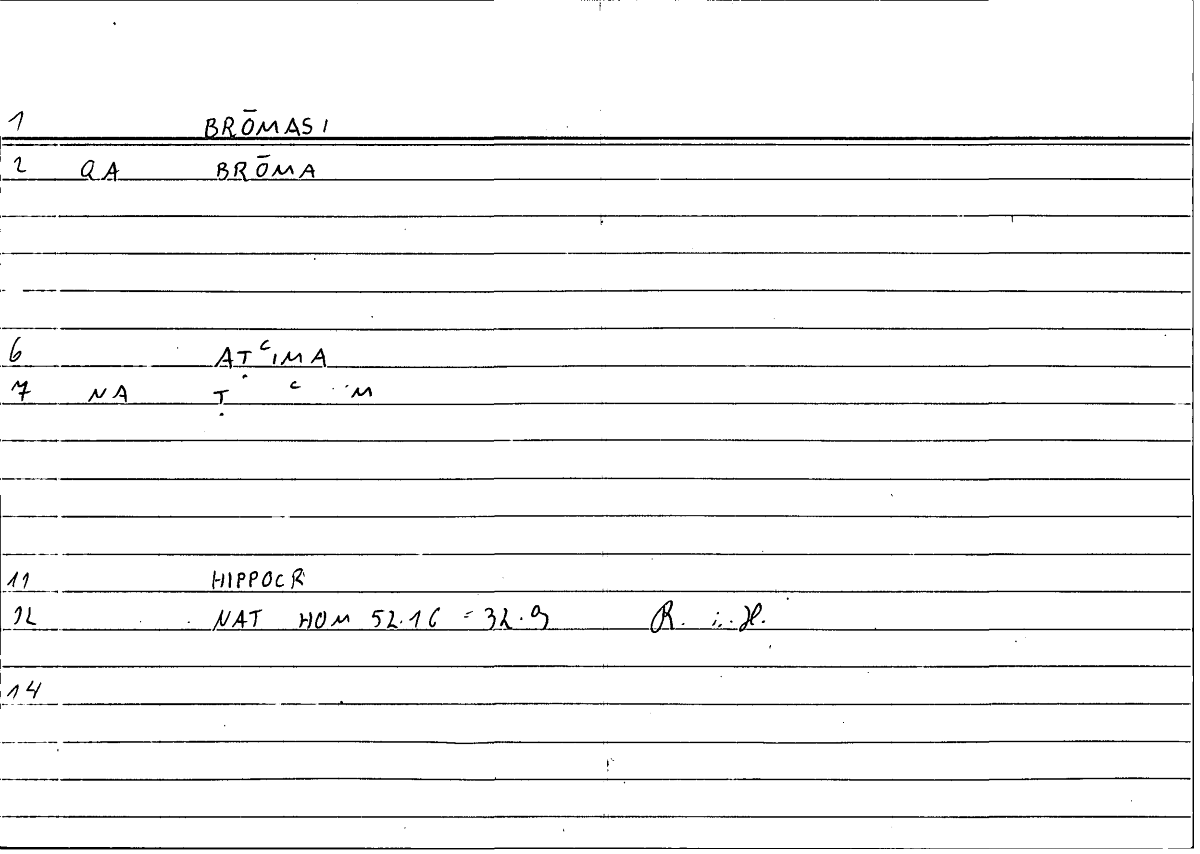 1 BRŌMASI
2 QA BRŌMA
6 AṬᶜIMA
7 NA Ṭ ᶜ M
11 HIPPOCR
12 NAT HOM 52.16 = 32.9 R. i. H.
14